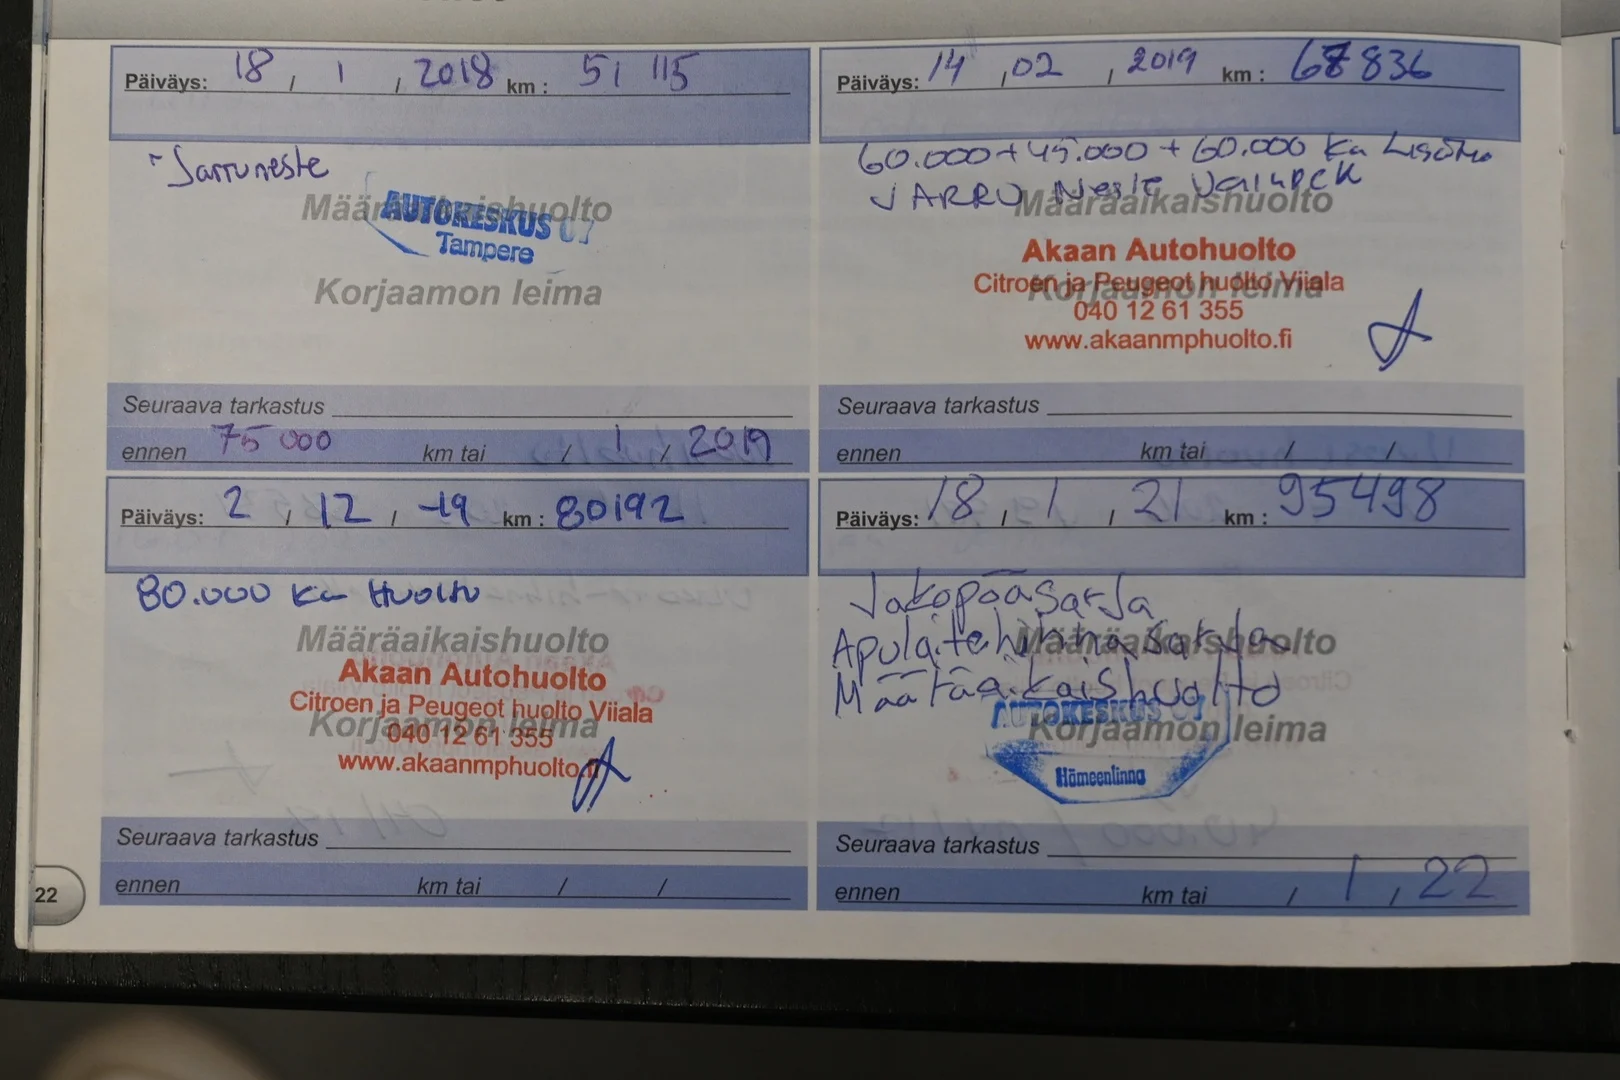 Päiväys: 18 , 1 , 2018 km : 51 115
- Jarruneste
Määräaikaishuolto
AUTOKESKUS 07
Tampere
Korjaamon leima
Seuraava tarkastus
ennen 75 000 km tai / 1 / 2019
Päiväys: 14 , 02 , 2019 km : 67836
60.000+45.000+60.000 Km
JARRU Neste
Määräaikaishuolto
Akaan Autohuolto
Citroen ja Peugeot huolto Viiala
Korjaamon leima
040 12 61 355
www.akaanmphuolto.fi
Seuraava tarkastus
ennen km tai / /
Päiväys: 2 , 12 , -19 km : 80192
80.000 Km Huolto
Määräaikaishuolto
Akaan Autohuolto
Citroen ja Peugeot huolto Viiala
Korjaamon leima
040 12 61 355
www.akaanmphuolto.fi
Seuraava tarkastus
ennen km tai / /
Päiväys: 18 , 1 , 21 km : 95498
Jakopääsarja
Apulaitehihnasarja
Määräaikaishuolto
Määräaikaishuolto
AUTOKESKUS 07
Korjaamon leima
Hämeenlinna
Seuraava tarkastus
ennen km tai / 1 , 22
22